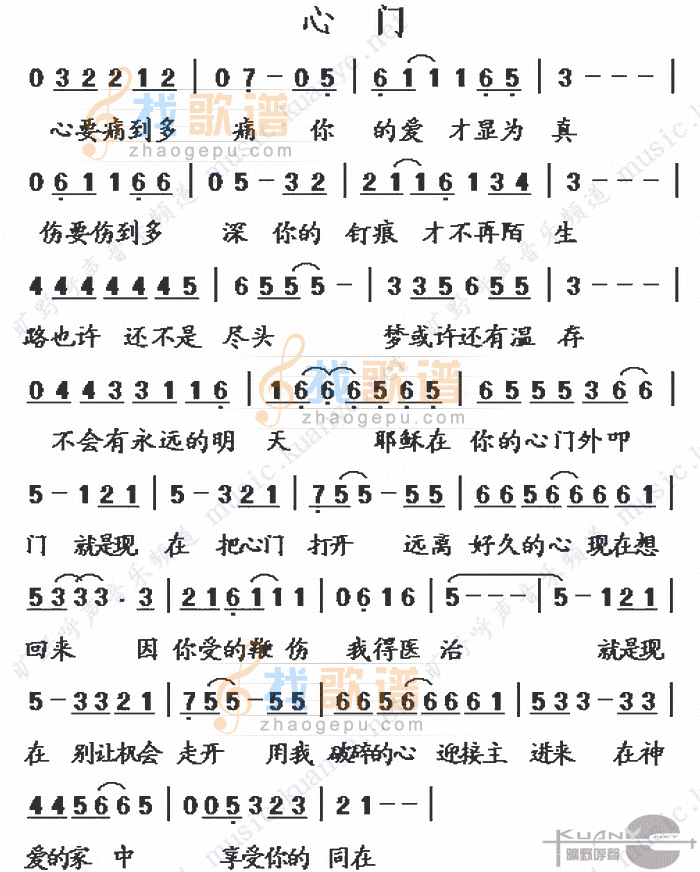 心 门
0 3 2 2 1 2 | 0 7 - 0 5 | 6 1 1 1 6 5 | 3 - - - |
心要痛到多 痛 你 的爱 才显为 真
0 6 1 1 6 6 | 0 5 - 3 2 | 2 1 1 6 1 3 4 | 3 - - - |
伤要伤到多 深 你的 钉痕 才不再陌 生
4 4 4 4 4 4 5 | 6 5 5 5 - | 3 3 5 6 5 5 | 3 - - - |
路也许 还不是 尽头 梦或许还有温 存
0 4 4 3 3 1 1 6 | 1 6 6 6 5 6 5 | 6 5 5 5 3 6 6 |
不会有永远的明 天 耶稣在 你的心门外叩
5 - 1 2 1 | 5 - 3 2 1 | 7 5 5 - 5 5 | 6 6 5 6 6 6 6 1 |
门 就是现 在 把心门 打开 远离 好久的心 现在想
5 3 3 3 · 3 | 2 1 6 1 1 1 | 0 6 1 6 | 5 - - - | 5 - 1 2 1 |
回来 因 你受的鞭 伤 我得医 治 就是现
5 - 3 3 2 1 | 7 5 5 - 5 5 | 6 6 5 6 6 6 6 6 1 | 5 3 3 - 3 3 |
在 别让机会 走开 用我 破碎的心 迎接主 进来 在神
4 4 5 6 6 5 | 0 0 5 3 2 3 | 2 1 - - |
爱的家 中 享受你的 同在
找歌谱
zhaogepu.com
找歌谱
zhaogepu.com
找歌谱
zhaogepu.com
旷野呼声音乐频道 music.kuanye.net
KUANYE.NET
曠野呼聲